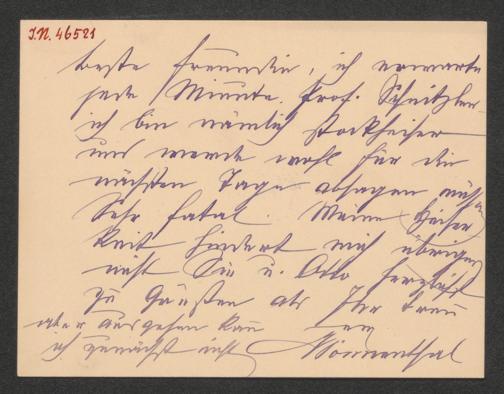 I.N. 46521
beste Freundin, ich erwarte
jede Minute Prof. Schnitzler
ich bin nämlich stockheiser
und werde wohl für die
nächsten Tage absagen müssen
Sehr fatal. Meine Heiser
keit hindert mich übrigens
nicht Sie u. Otto herzlichst
zu grüßen als Ihr treu
er
aber ausgehen kann
ich zunächst nicht
Sonnenthal